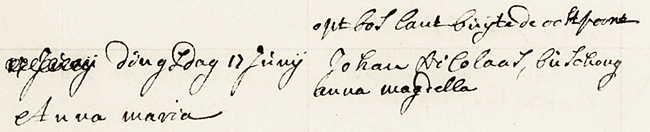 opt bos laut buijte de oostpoort
dingsdag 17 Junij Johan Nicolaas, buschong
anna magdella
Anna maria